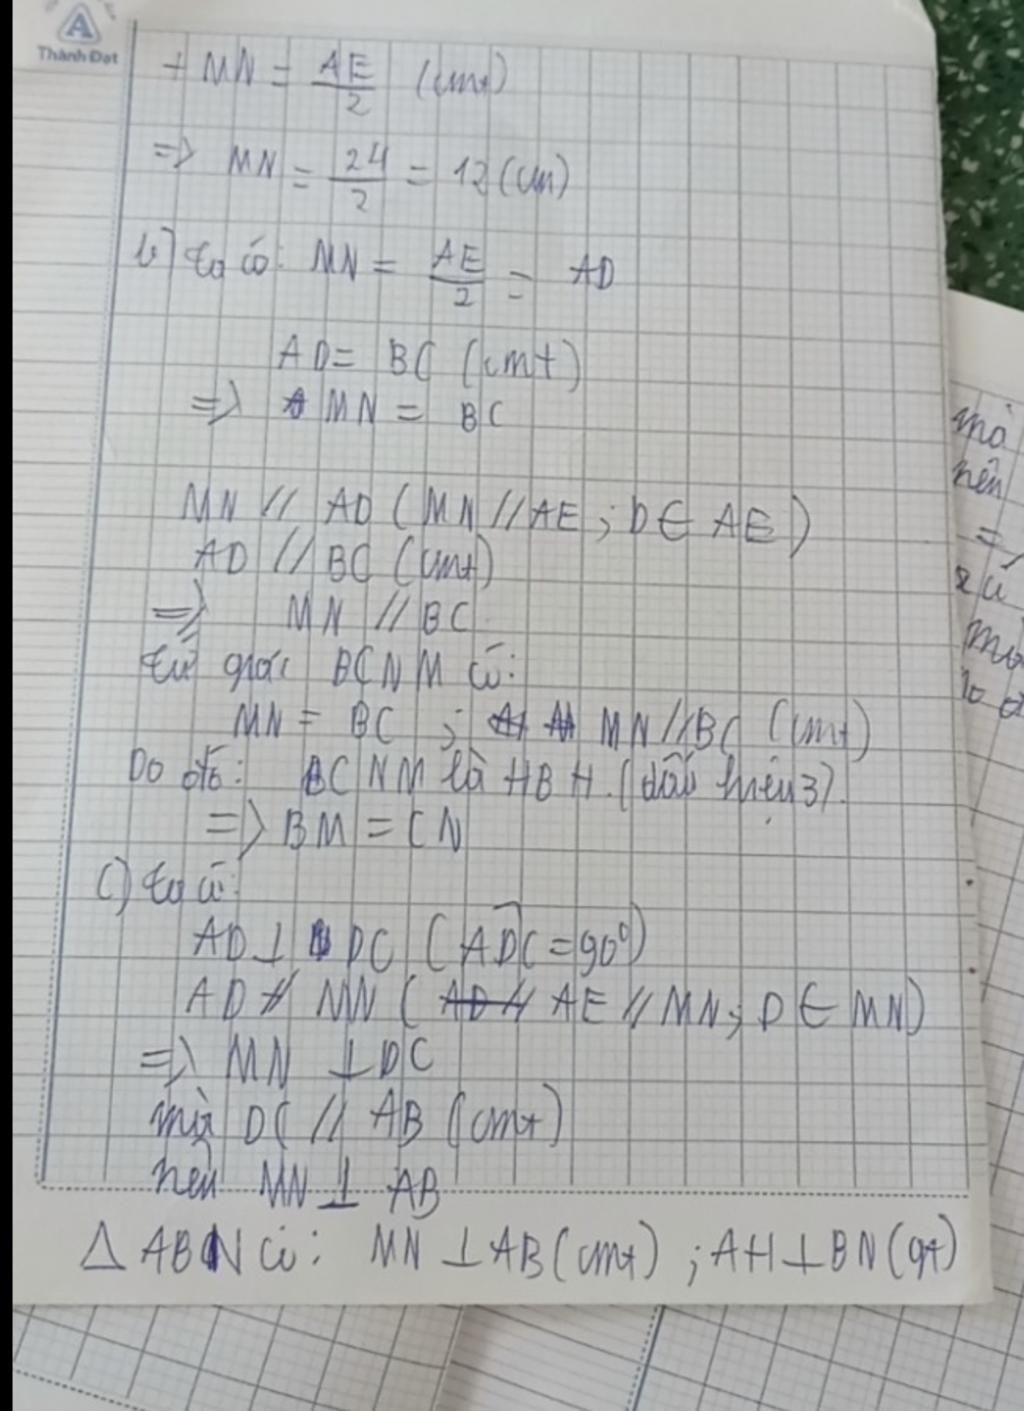 Thành Đạt
+ MN = AE/2 (cmt)
=> MN = 24/2 = 12 (cm)
b) ta có: MN = AE/2 = AD
AD = BC (cmt)
=> MN = BC
MN // AD (MN // AE ; D ∈ AE)
AD // BC (cmt)
=> MN // BC
tứ giác BCNM có:
MN = BC ; MN // BC (cmt)
Do đó: BCNM là HBH. (dấu hiệu 3).
=> BM = CN
c) ta có:
AD ⊥ DC (ADC = 90⁰)
AD // MN (AD // AE // MN ; D ∈ MN)
=> MN ⊥ DC
mà DC // AB (cmt)
nên MN ⊥ AB
Δ ABN có: MN ⊥ AB (cmt) ; AH ⊥ BN (gt)
mà
nên
=>